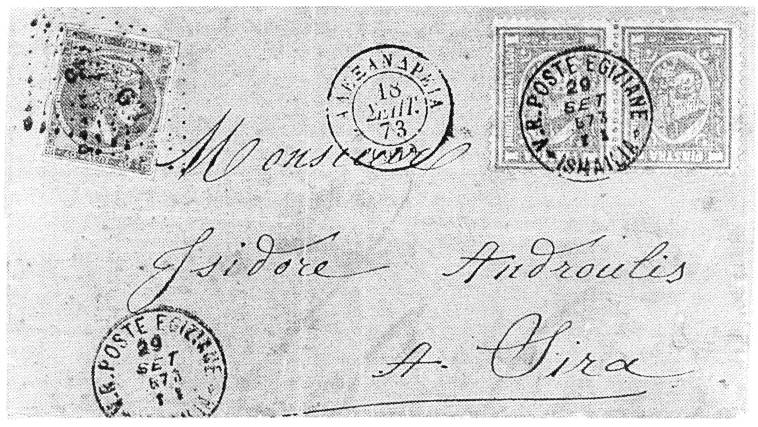 ΑΛΕΞΑΝΔΡΕΙΑ
18
ΣΕΠΤ.
73
V.R. POSTE EGIZIANE
29
SET
873
ISMAILIA
Monsieur
Isidore Androulis
A. Sira
V.R. POSTE EGIZIANE
29
SET
873